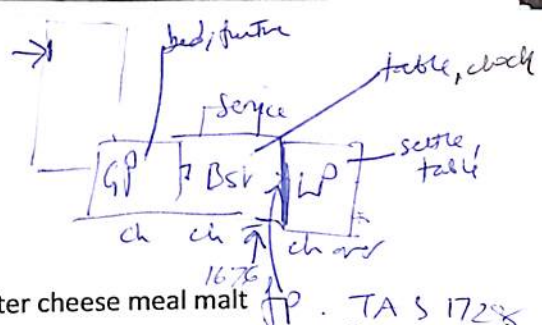 bed, furntre
table, clock
Service
settle,
table
GP
BSt
LP
ch
ch
ch over
1676
ter cheese meal malt
FP. TAS 1728